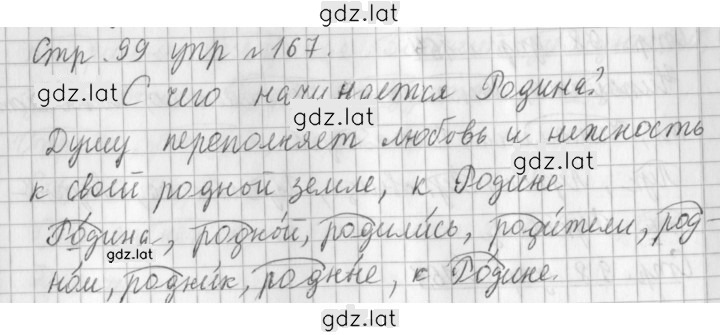 gdz.lat
Стр. 99 упр № 167.
gdz.lat
С чего начинается Родина?
Душу переполняет любовь и нежность
gdz.lat
к своей родной земле, к Родине
Ро́дина, родно́й, роди́лись, роди́тели, род-
gdz.lat
но́м, родни́к, родны́е, к Ро́дине.
gdz.lat